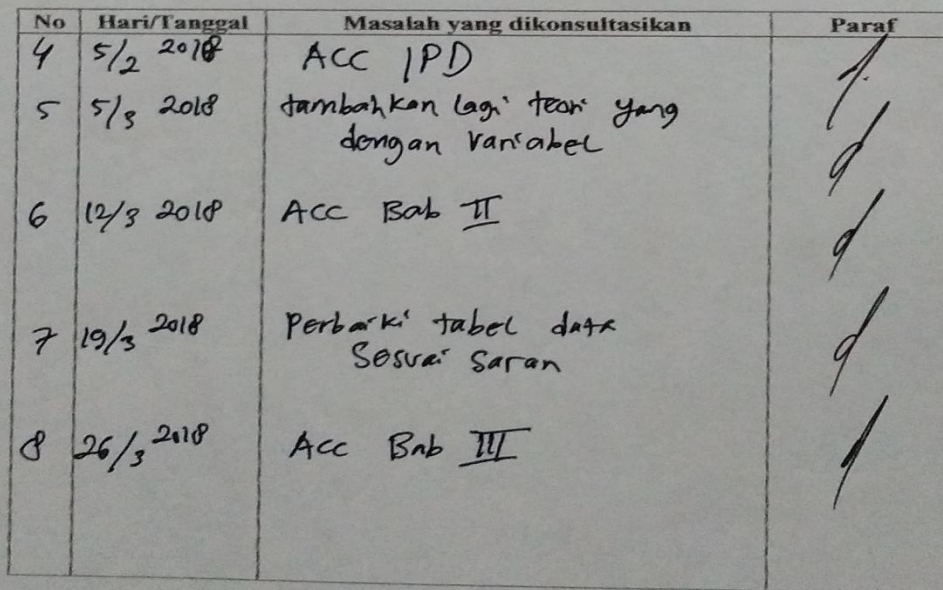 No Hari/Tanggal Masalah yang dikonsultasikan Paraf
4 5/2 2018 ACC IPD
5 5/3 2018 tambahkan lagi teori yang
dengan variabel
6 12/3 2018 ACC Bab II
7 19/3 2018 Perbaiki tabel data
Sesuai Saran
8 26/3 2018 Acc Bab III